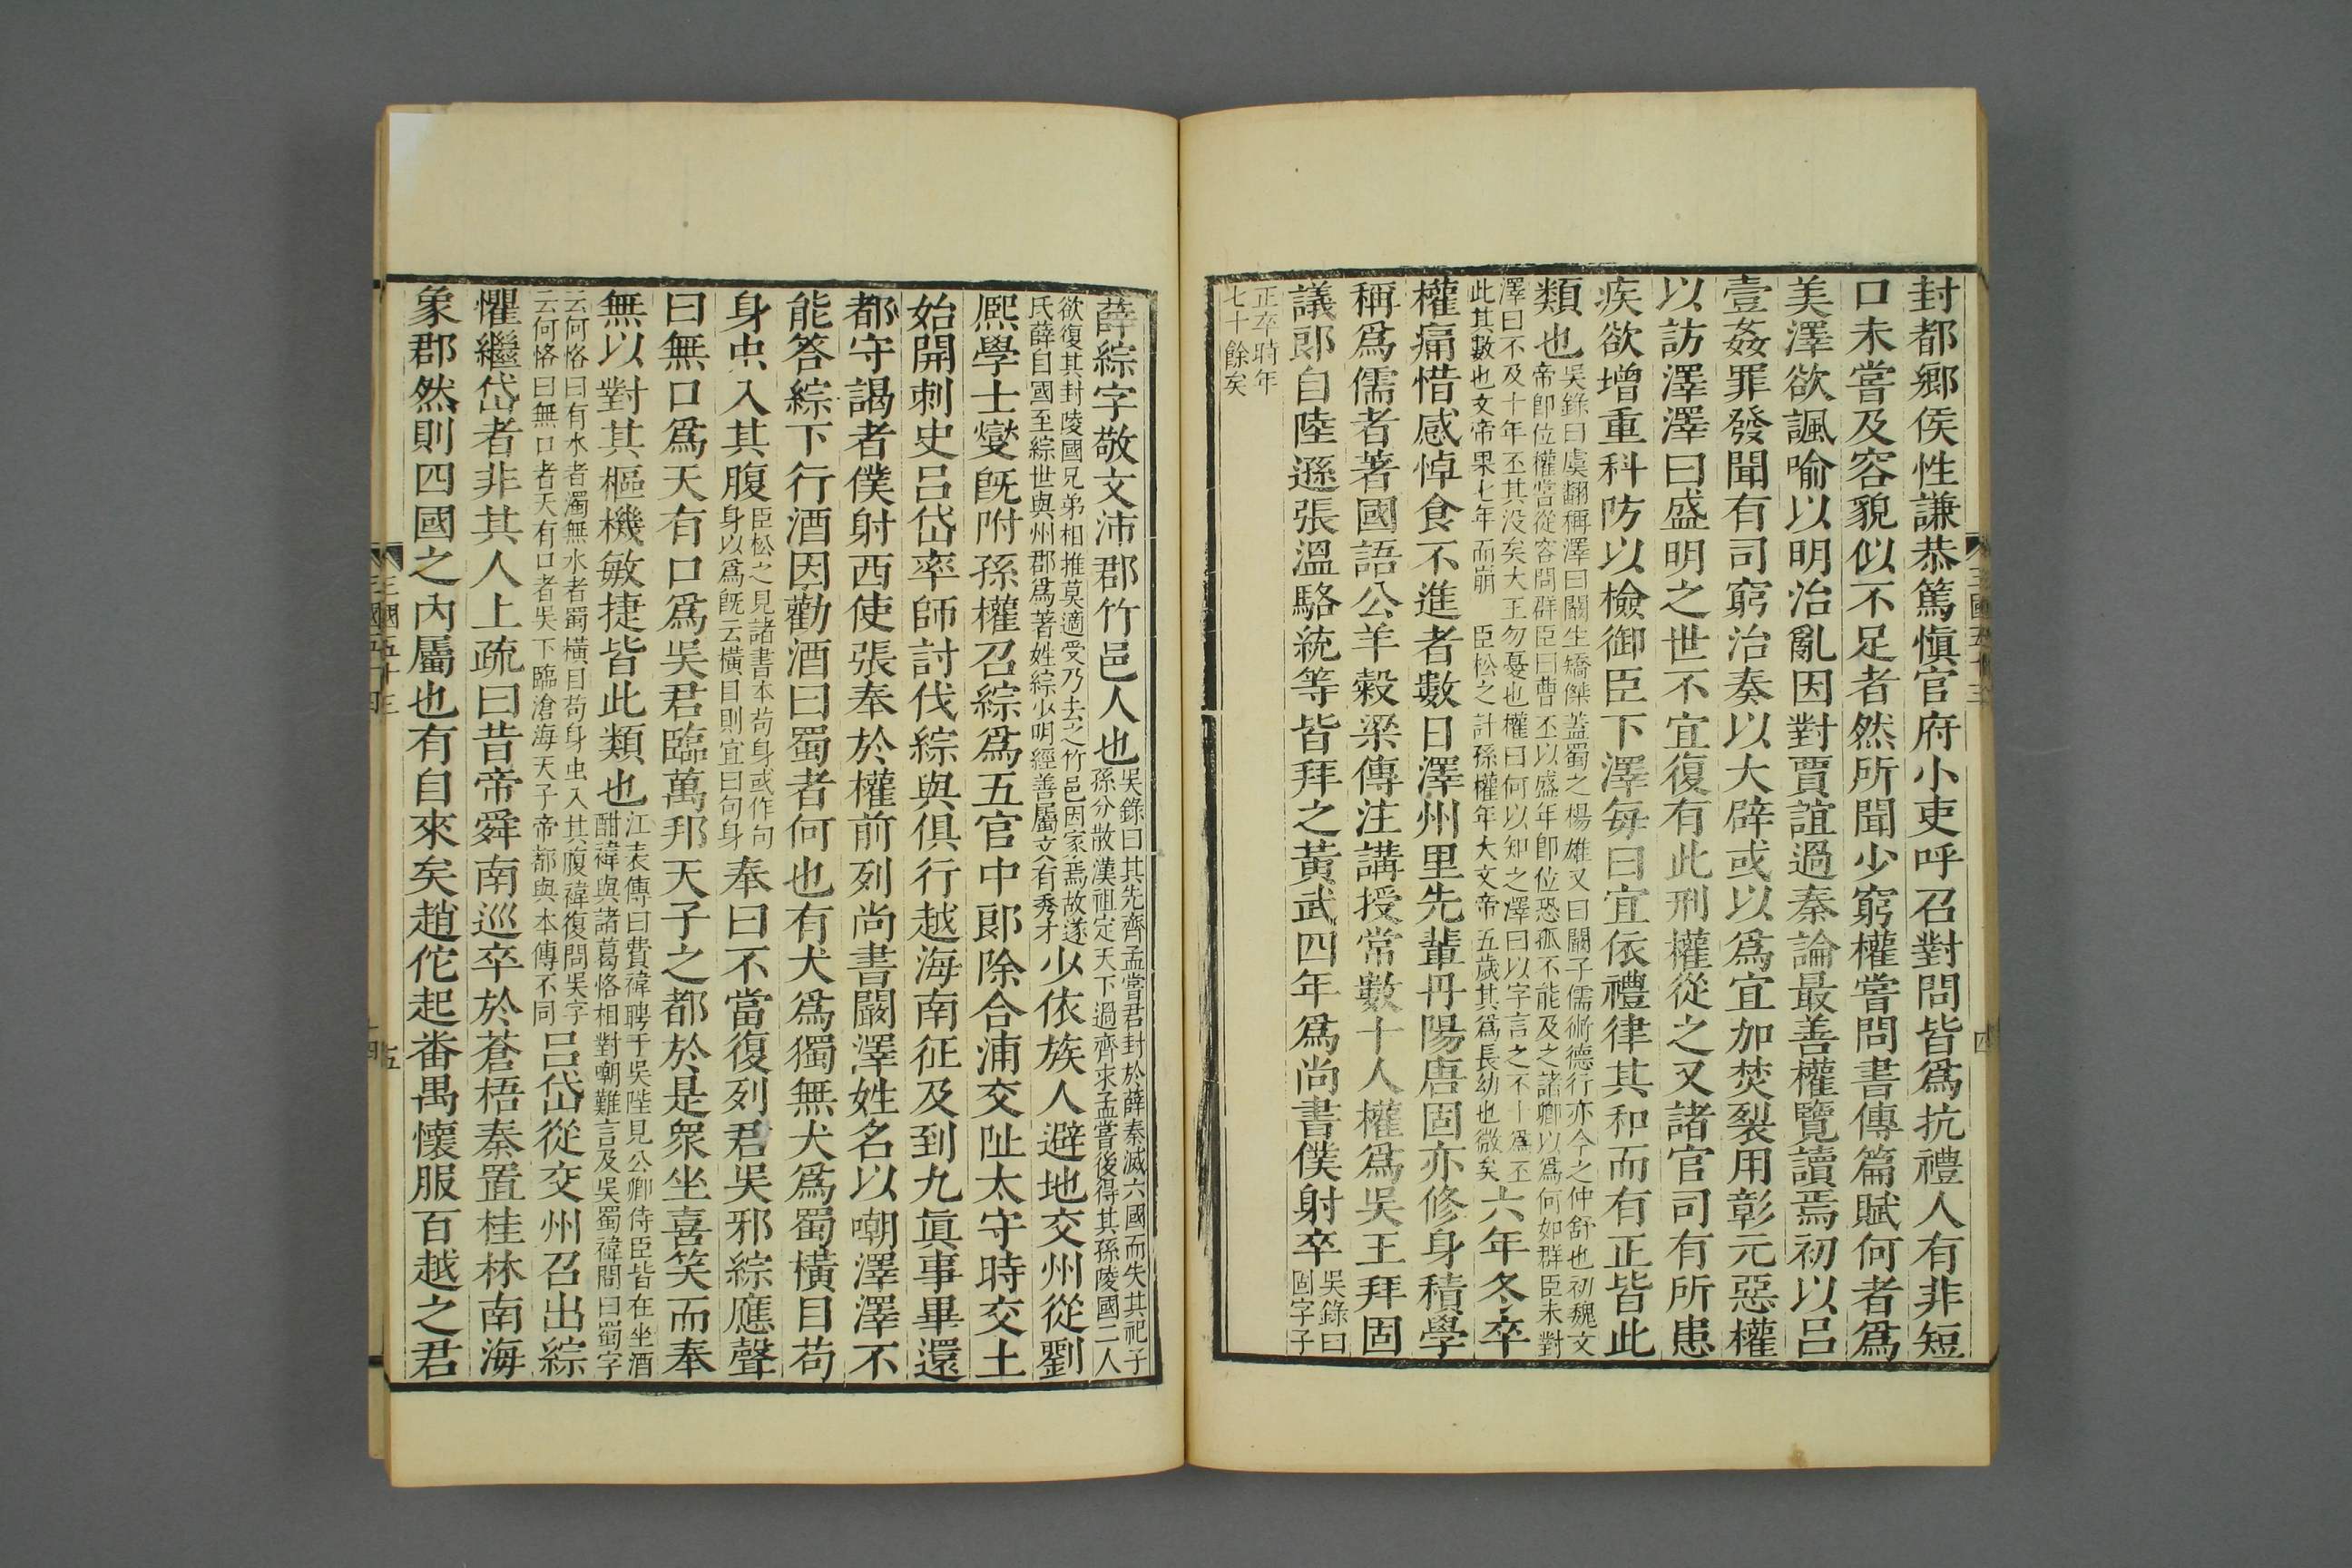 封都鄉侯性謙恭篤愼官府小吏呼召對問皆爲抗禮人有非短
口未嘗及容貌似不足者然所聞少窮權嘗問書傳篇賦何者爲
美澤欲諷喻以明治亂因對賈誼過秦論最善權覽讀焉初以呂
壹姦罪發聞有司窮治奏以大辟或以爲宜加焚裂用彰元惡權
以訪澤澤曰盛明之世不宜復有此刑權從之又諸官司有所患
疾欲增重科防以檢御臣下澤每曰宜依禮律其和而有正皆此
類也吳錄曰虞翻稱澤曰闞生矯傑蓋蜀之楊雄又曰闞子儒術德行亦今之仲舒也初魏文帝卽位權嘗從容問群臣曰曹丕以盛年卽位恐孤不能及之諸卿以爲何如群臣未對
澤曰不及十年丕其没矣大王勿憂也權曰何以知之澤曰以字言之不十爲丕此其數也文帝果七年而崩 臣松之計孫權年大文帝五歲其爲長幼也微矣六年冬卒
權痛惜感悼食不進者數日澤州里先輩丹陽唐固亦修身積學
稱爲儒者著國語公羊穀梁傳注講授常數十人權爲吳王拜固
議郎自陸遜張溫駱統等皆拜之黃武四年爲尚書僕射卒吳錄曰固字子
正卒時年七十餘矣
薛綜字敬文沛郡竹邑人也吳錄曰其先齊孟嘗君封於薛秦滅六國而失其祀子孫分散漢祖定天下過齊求孟嘗後得其孫陵國二人
欲復其封陵國兄弟相推莫適受乃去之竹邑因家焉故遂氏薛自國至綜世典州郡爲著姓綜少明經善屬文有秀才少依族人避地交州從劉
熙學士燮旣附孫權召綜爲五官中郎除合浦交阯太守時交土
始開刺史呂岱率師討伐綜與俱行越海南征及到九眞事畢還
都守謁者僕射西使張奉於權前列尚書闞澤姓名以嘲澤澤不
能答綜下行酒因勸酒曰蜀者何也有犬爲獨無犬爲蜀橫目苟
身虫入其腹臣松之見諸書本苟身或作句身以爲旣云橫目則宜曰句身奉曰不當復列君吳邪綜應聲
曰無口爲天有口爲吳君臨萬邦天子之都於是衆坐喜笑而奉
無以對其樞機敏捷皆此類也江表傳曰費禕聘于吳陛見公卿侍臣皆在坐酒酣禕與諸葛恪相對嘲難言及吳蜀禕問曰蜀字
云何恪曰有水者濁無水者蜀橫目苟身虫入其腹禕復問吳字云何恪曰無口者天有口者吳下臨滄海天子帝都與本傳不同呂岱從交州召出綜
懼繼岱者非其人上疏曰昔帝舜南巡卒於蒼梧秦置桂林南海
象郡然則四國之內屬也有自來矣趙佗起番禺懷服百越之君
三國五十三
五